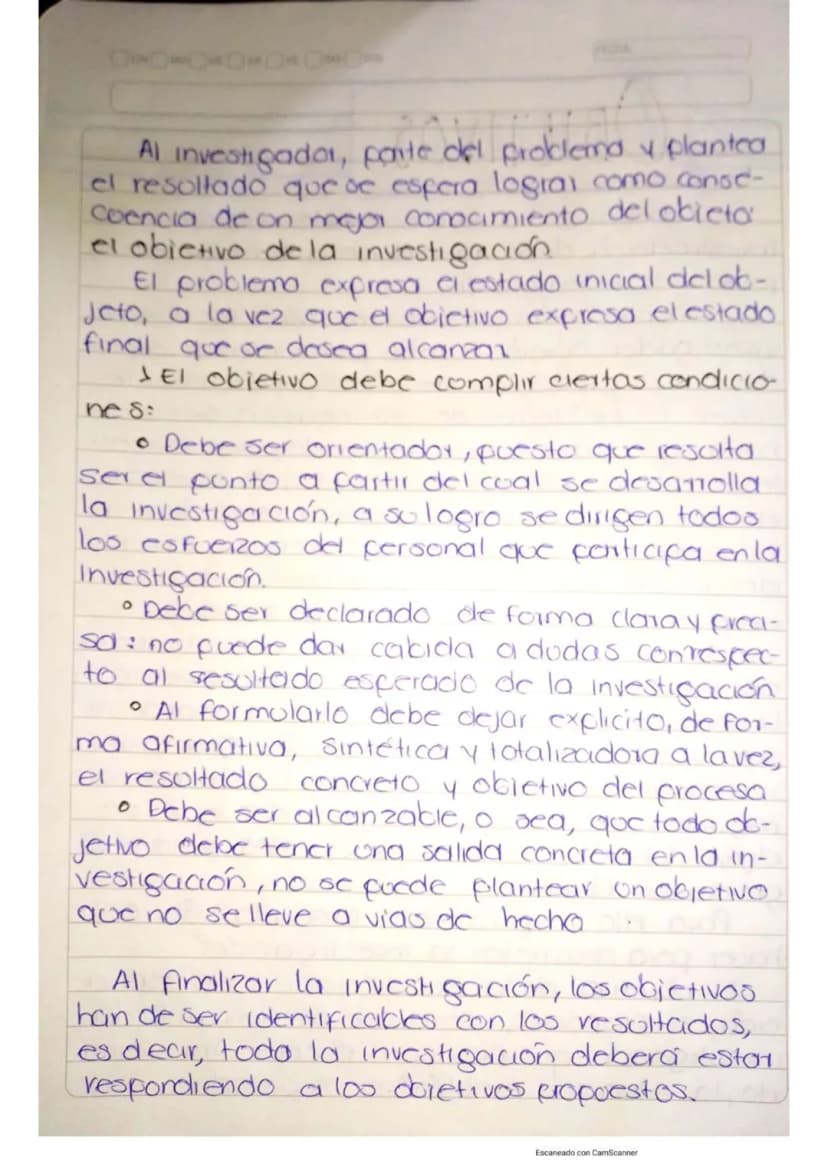 FECHA
Al investigador, parte del problema y plantea
el resultado que se espera lograr como conse-
cuencia de un mejor conocimiento del objeto:
el objetivo de la investigación
El problema expresa el estado inicial del ob-
jeto, a la vez que el objetivo expresa el estado
final que se desea alcanzar
El objetivo debe complir ciertas condicio-
nes:
• Debe ser orientador, puesto que resulta
ser el punto a partir del cual se desarrolla
la investigación, a su logro se dirigen todos
los esfuerzos del personal que participa en la
Investigación.
• Debe ser declarado de forma clara y preci-
sa: no puede dar cabida a dudas con respec-
to al resultado esperado de la investigación
• Al formularlo debe dejar explicito, de for-
ma afirmativa, sintética y totalizadora a la vez,
el resultado concreto y objetivo del procesa
• Debe ser alcanzable, o sea, que todo ob-
jetivo debe tener una salida concreta en la in-
vestigación, no se puede plantear un objetivo
que no se lleve a vias de hecho
Al finalizar la investigación, los objetivos
han de ser identificables con los resultados,
es decir, toda la investigación deberá estar
respondiendo a los objetivos propuestos.
Escaneado con CamScanner